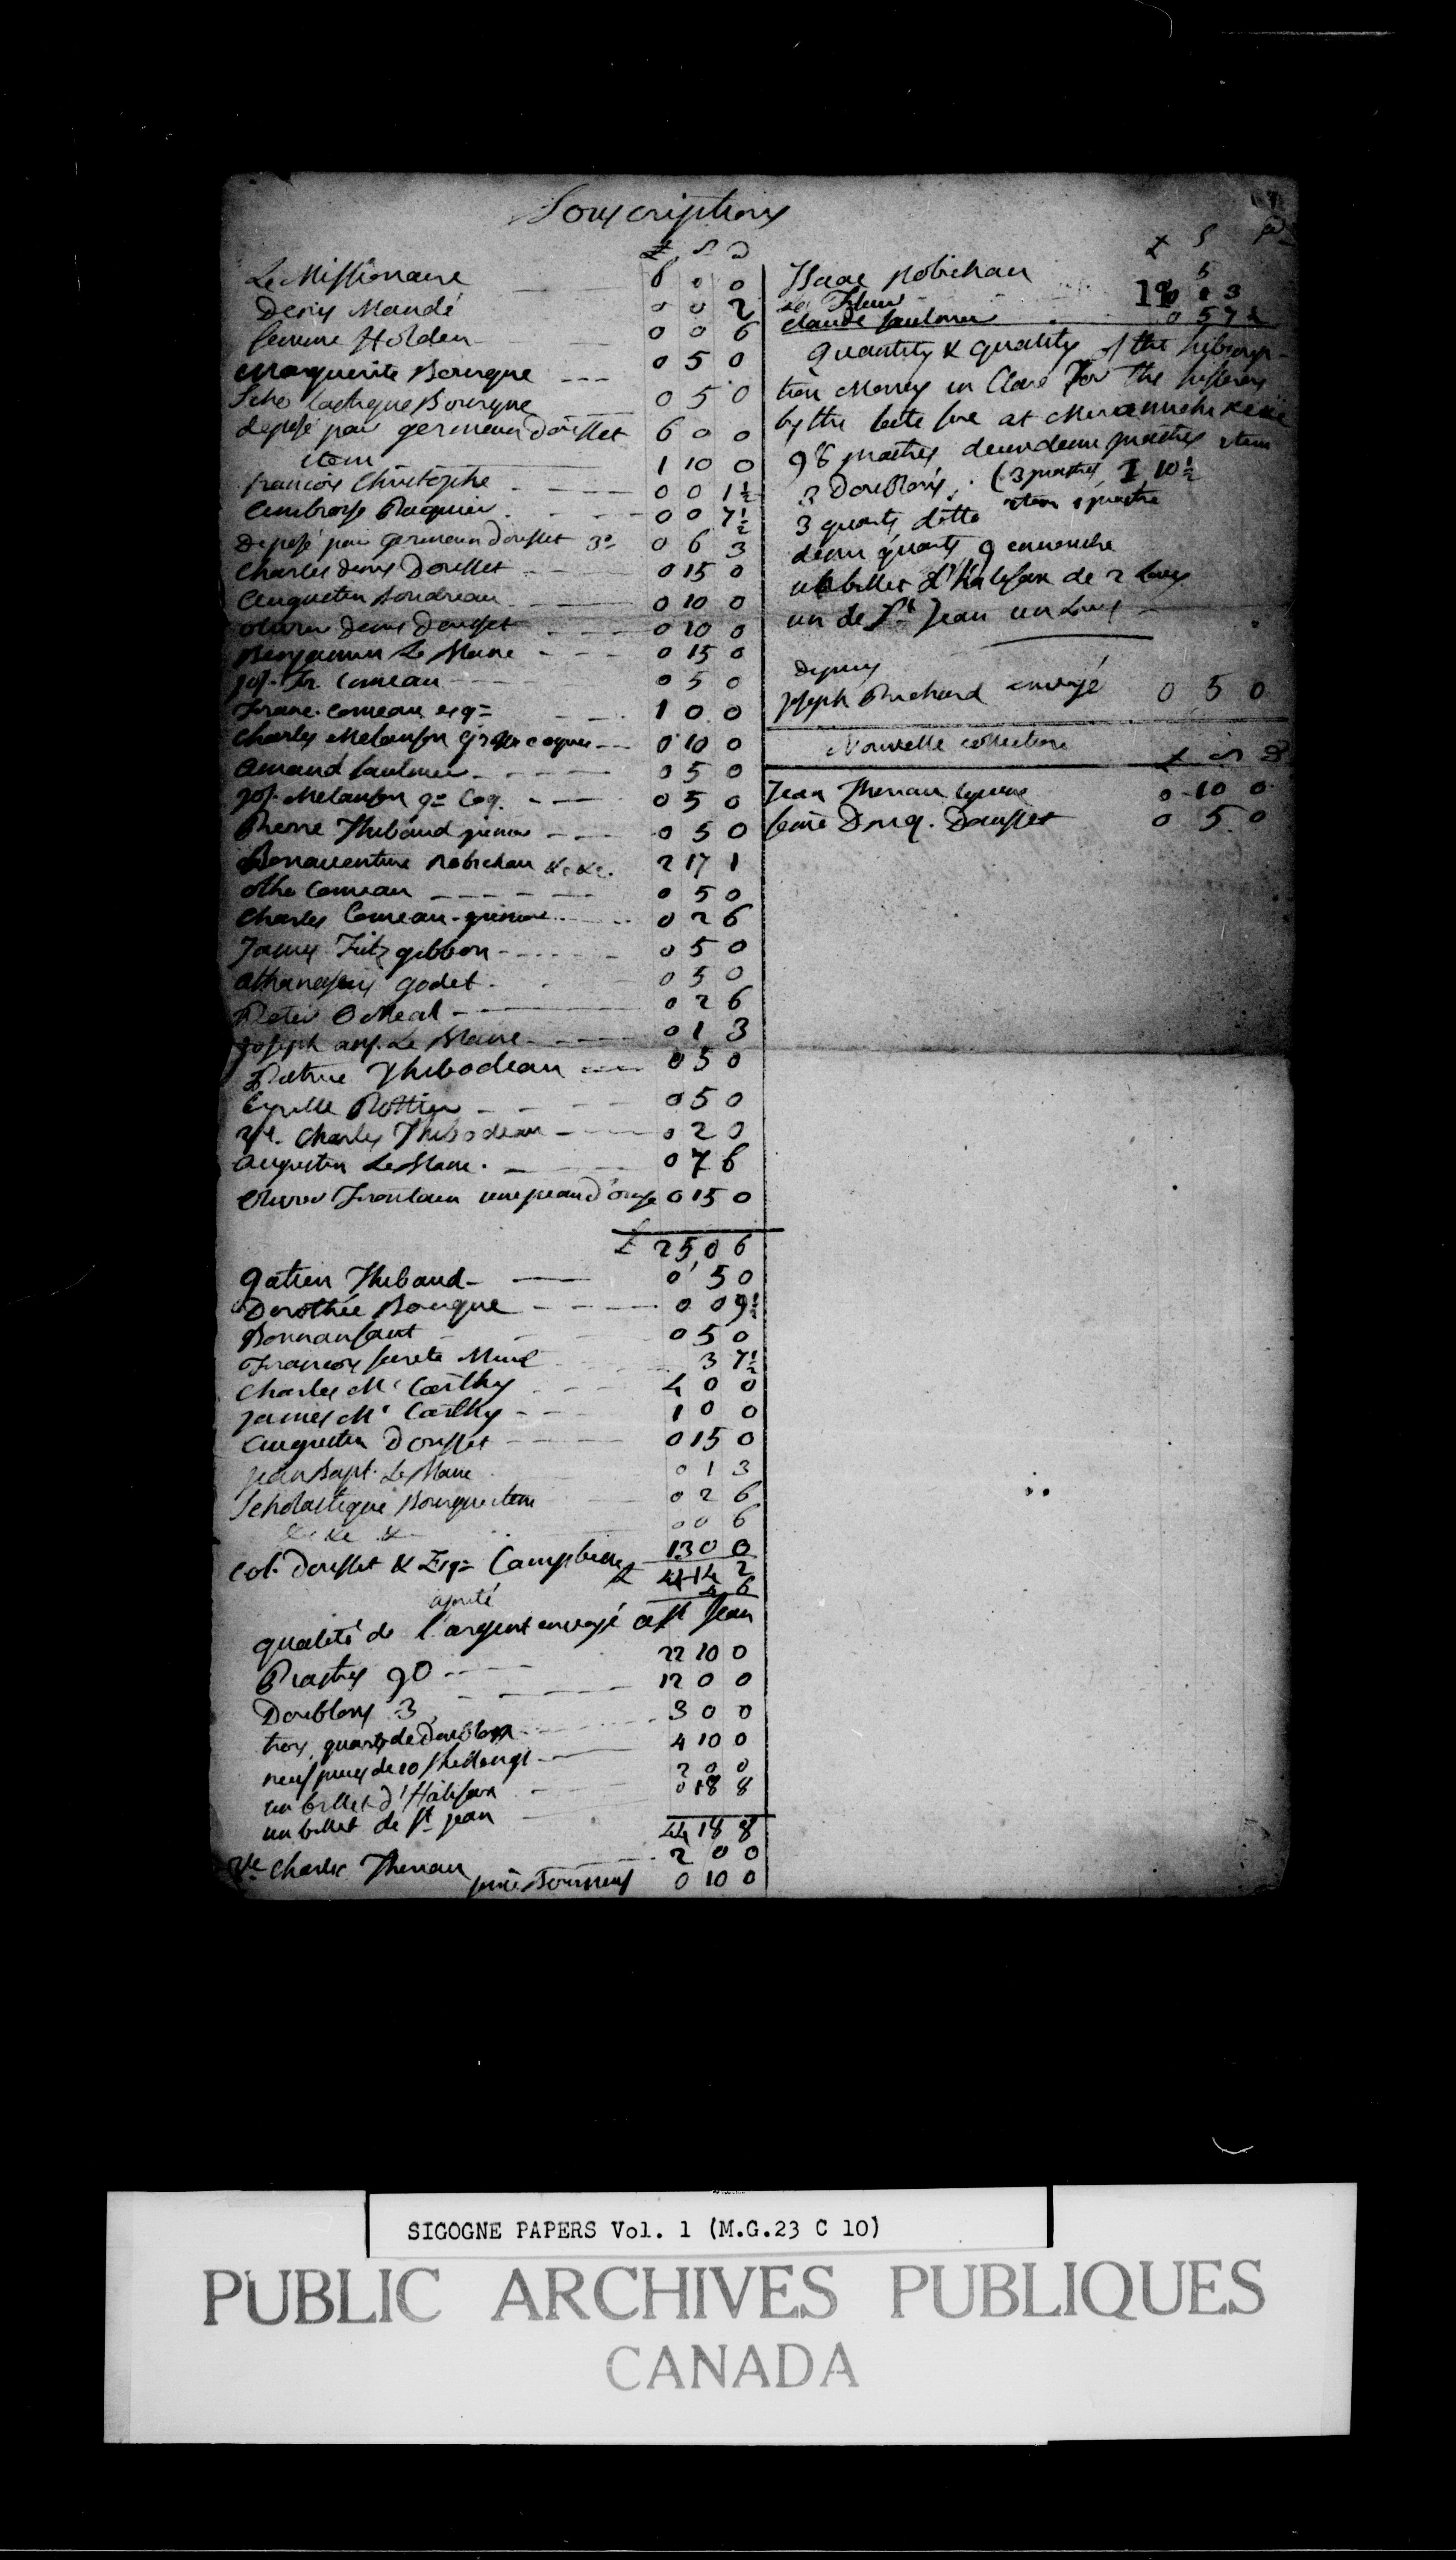 Souscriptions
£ S D
Le Missionaire 6 0 0
Denis Maudé 0 0 2
femme Holden 0 0 6
Marguerite Bourque 0 5 0
Scholastique Bourque 0 5 0
deposé par germain Doucet 6 0 0
item 1 10 0
francois Christophe 0 0 1½
Ambroise Paquier 0 0 7½
Deposé par Germain Doucet 3e 0 6 3
Charles denis Doucet 0 15 0
Augustin Boudreau 0 10 0
olivier Denis Doucet 0 10 0
Benjamin Le Blanc 0 15 0
Jos. Fr. Comeau 0 5 0
Franc. Comeau esq= 1 0 0
Charles Melanson 0 10 0
Amand Saulnier 0 5 0
Jos. Melanson g= Coq. 0 5 0
Pierre Thibaud 0 5 0
Bonaventure Robichau &c &c. 2 17 1
otho Comeau 0 5 0
Charles Comeau 0 2 6
James Fitzgibbon 0 5 0
Athanasius Godet 0 5 0
Peter O Neal 0 2 6
Joseph ans. Le Blanc 0 1 3
Patrice Thibodeau 0 5 0
Cyrille Pottier 0 5 0
Ve. Charles Thibodeau 0 2 0
Augustin Le Blanc 0 7 6
Olivier Frontain une peau d'ourse 0 15 0
£ 25 0 6
Gatien Thibaud 0 5 0
Dorothée Bourque 0 0 9½
Bonnanfant 0 5 0
Francois 3 7½
Charles Mc Carthy 4 0 0
James Mc Carthy 1 0 0
Augustin Doucet 0 15 0
Jean Bapt. Le Blanc 0 1 3
Scholastique Bourque item 0 2 6
&c &c &c 0 0 6
Col. Doucet & Esq= Campbell 13 0 0
£ 44 14 2
ajouté 4 6
qualité de l'argent envoyé a St Jean
Piastres 90 22 10 0
Doublons 3 12 0 0
trois quarts de Doublon 3 0 0
neuf pieces de 10 shellings 4 10 0
un billet d'Halifax 2 0 0
un billet de St Jean 0 18 8
44 18 8
Ve Charles Theriau 2 0 0
Bourneuf 0 10 0
£ S D
Isaac Robichau 5
1 3
Claude Saulnier 0 5 7½
Quantity & quality of the subscrip-
tion Money in Clare for the sufferers
by the late fire at Miramichi &c &c
98 piastres deux demi piastres item
3 Doublons (3 piastres 1 10½
3 quarts ditto item 1 piastre
demi quarts 9 en
un billet d'Halifax de 2 Louis
un de St Jean un Louis
Depuis
Joseph Prichard envoyé 0 5 0
Nouvelle collection £ S D
Jean Theriau 0 10 0
Doucet 0 5 0
SIGOGNE PAPERS Vol. 1 (M.G.23 C 10)
PUBLIC ARCHIVES PUBLIQUES
CANADA